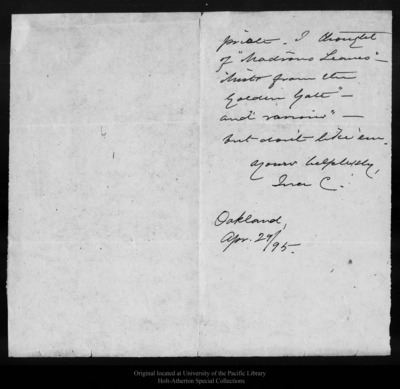 I thought
of "Madrono Leaves" –
"Mists from the
Golden Gate" –
and "various" –
but don't like 'em.
Yours helplessly,
Ina C.
Oakland,
Apr. 29/95.
Original located at University of the Pacific Library
Holt-Atherton Special Collections